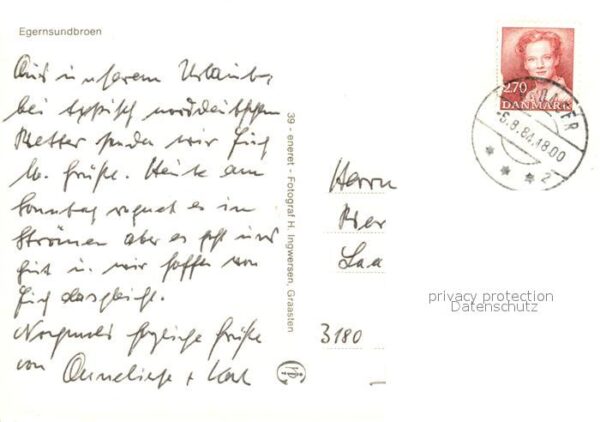 Egernsundbroen
Aus unserem Urlaub,
bei typisch norddeutschem
Wetter senden wir Euch
lb. Grüße. Heute am
Sonntag regnet es in
Strömen aber es geht uns
gut u. wir hoffen von
Euch dasgleiche.
Nochmals herzliche Grüße
von Anneliese + Karl
39 - eneret - Fotograf H. Ingwersen, Graasten
2.70
DANMARK
-5.8.84.18.00
Herrn
3180
privacy protection
Datenschutz